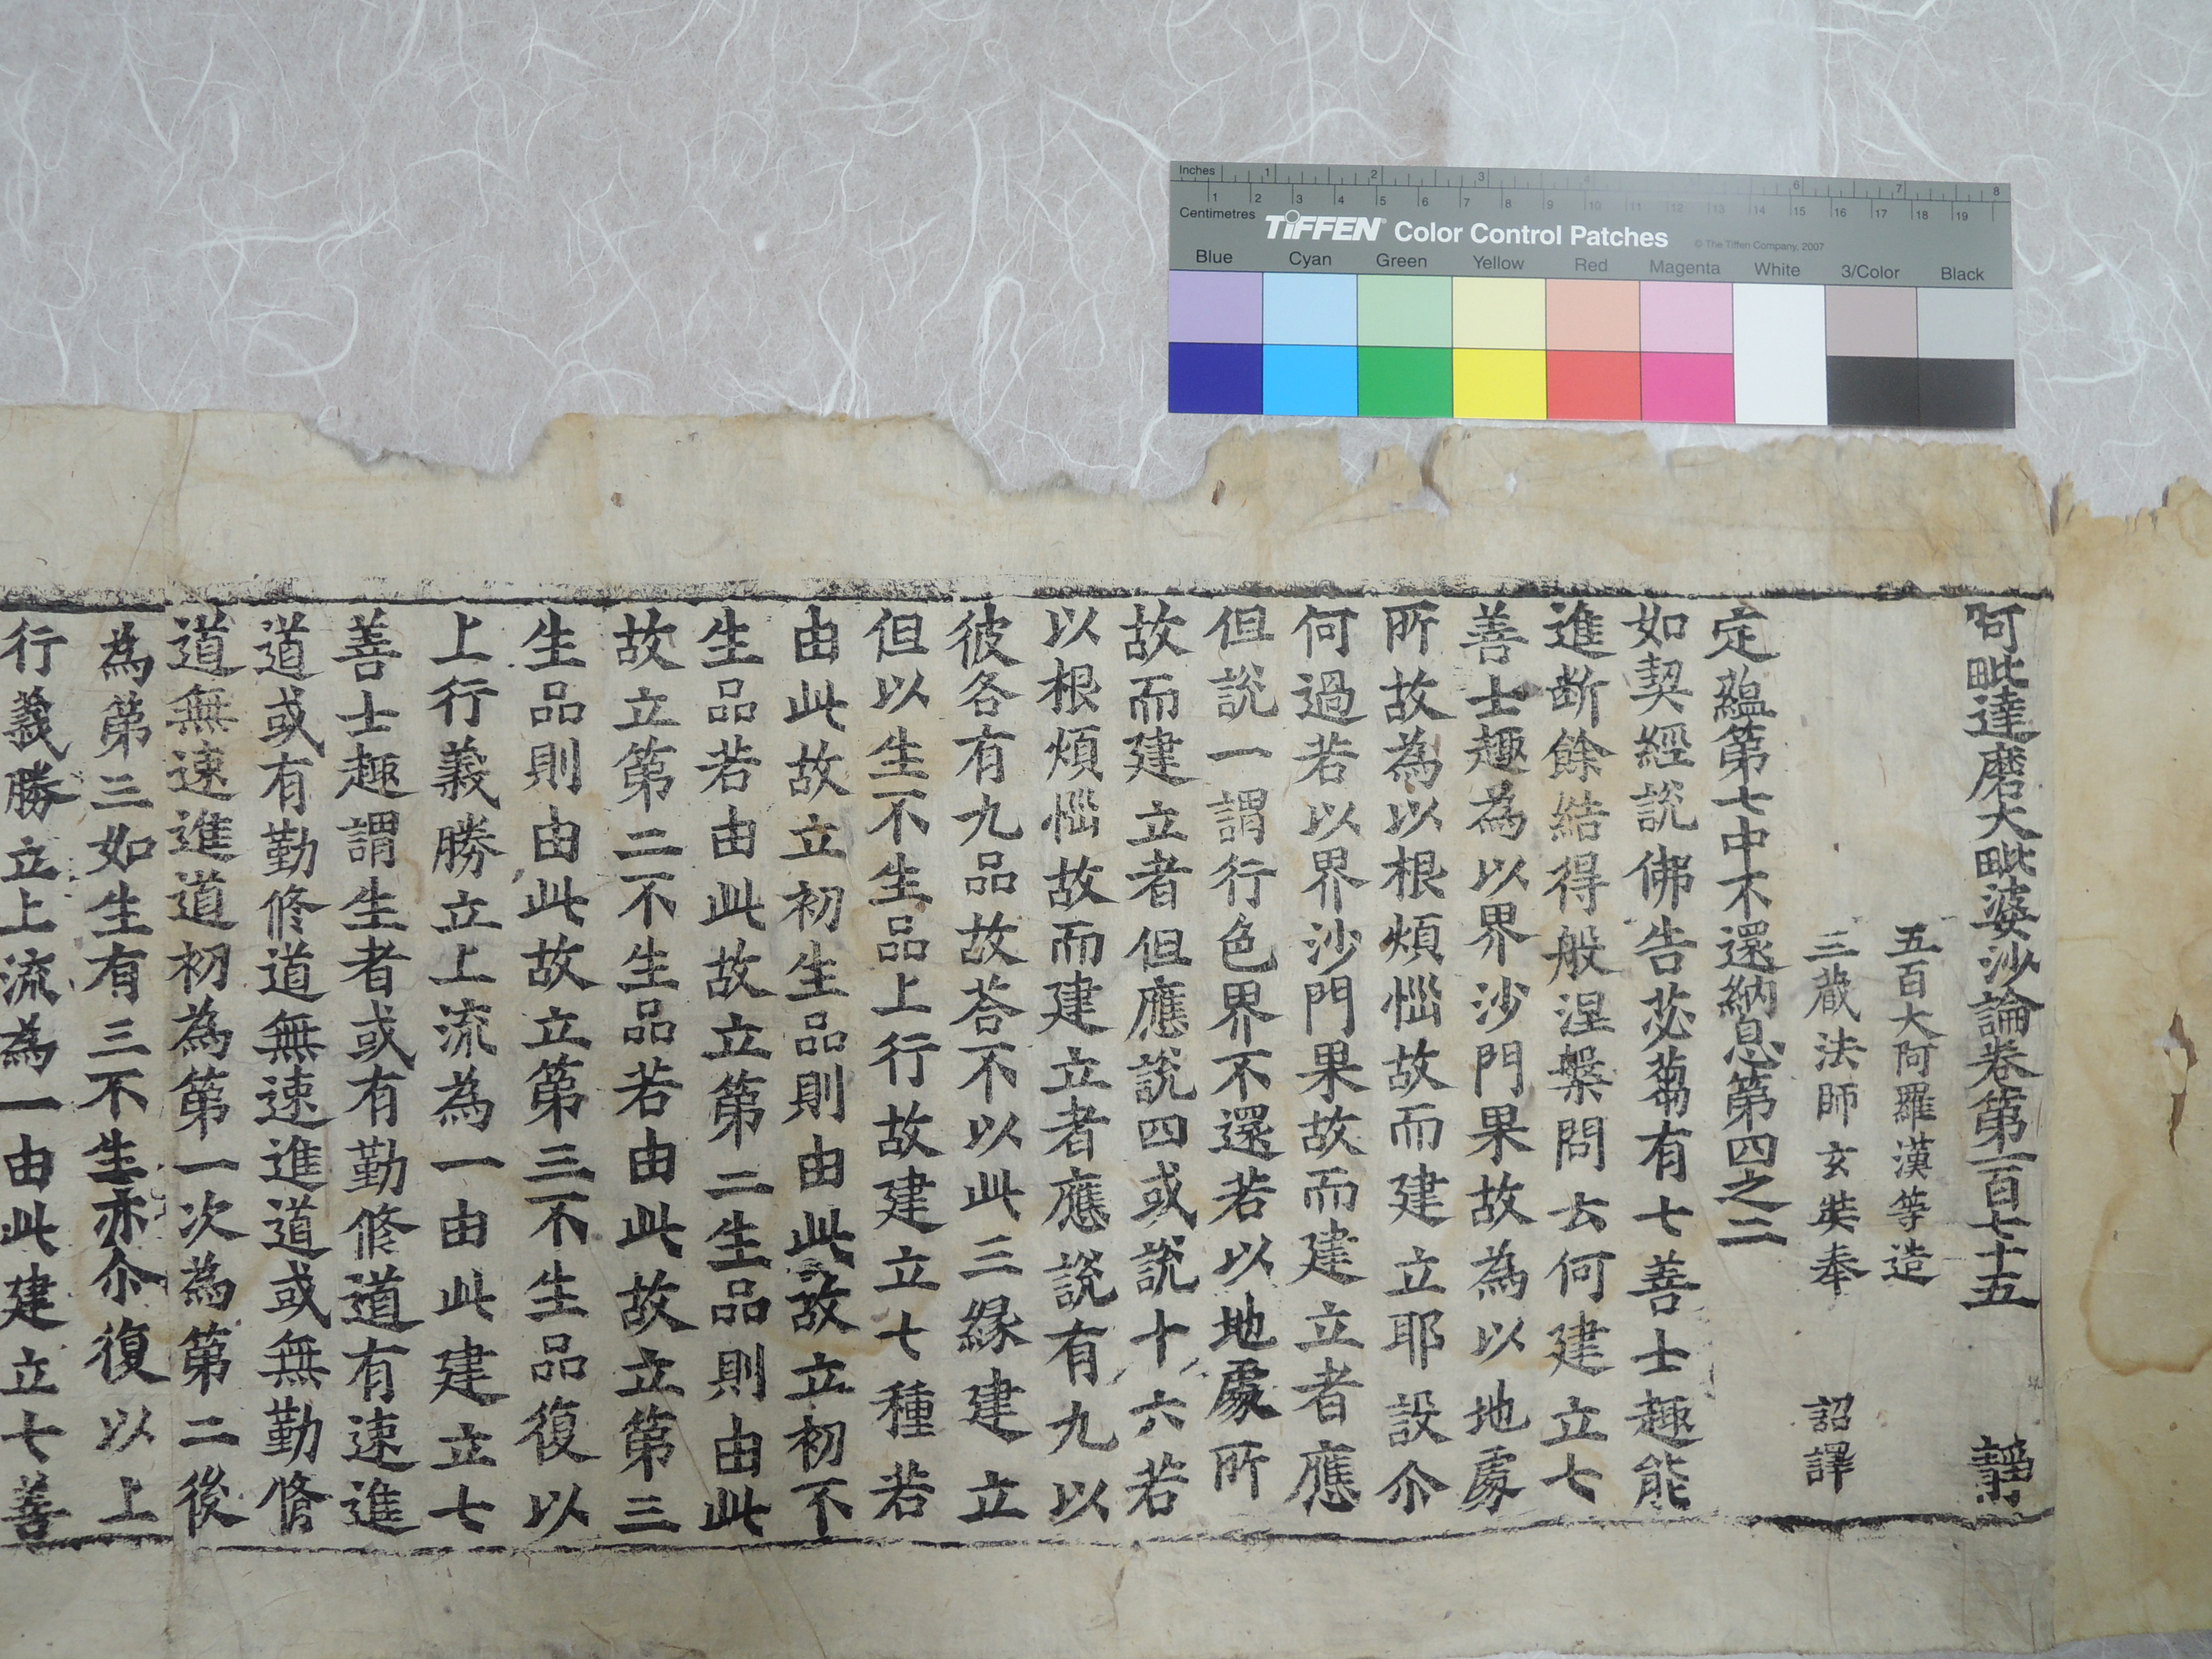 Inches 1 2 3 4 6 7 8
1 2 3 4 5 6 7 8 9 10 11 12 13 14 15 16 17 18 19
Centimetres
TIFFEN Color Control Patches © The Tiffen Company, 2007
Blue Cyan Green Yellow Red Magenta White 3/Color Black
阿毗達磨大毗婆沙論卷第一百七十五 靜
五百大阿羅漢等造
三藏法師玄奘奉 詔譯
定蘊第七中不還納息第四之二
如契經說佛告苾蒭有七善士趣能
進斷餘結得般涅槃問去何建立七
善士趣為以界沙門果故為以地處
所故為以根煩惱故而建立耶設尒
何過若以界沙門果故而建立者應
但說一謂行色界不還若以地處所
故而建立者但應說四或說十六若
以根煩惱故而建立者應說有九以
彼各有九品故荅不以此三緣建立
但以生不生品上行故建立七種若
由此故立初生品則由此故立初不
生品若由此故立第二生品則由此
故立第二不生品若由此故立第三
生品則由此故立第三不生品復以
上行義勝立上流為一由此建立七
善士趣謂生者或有勤修道有速進
道或有勤修道無速進道或無勤修
道無速進道初為第一次為第二後
為第三如生有三不生亦尒復以上
行義勝立上流為一由此建立七善